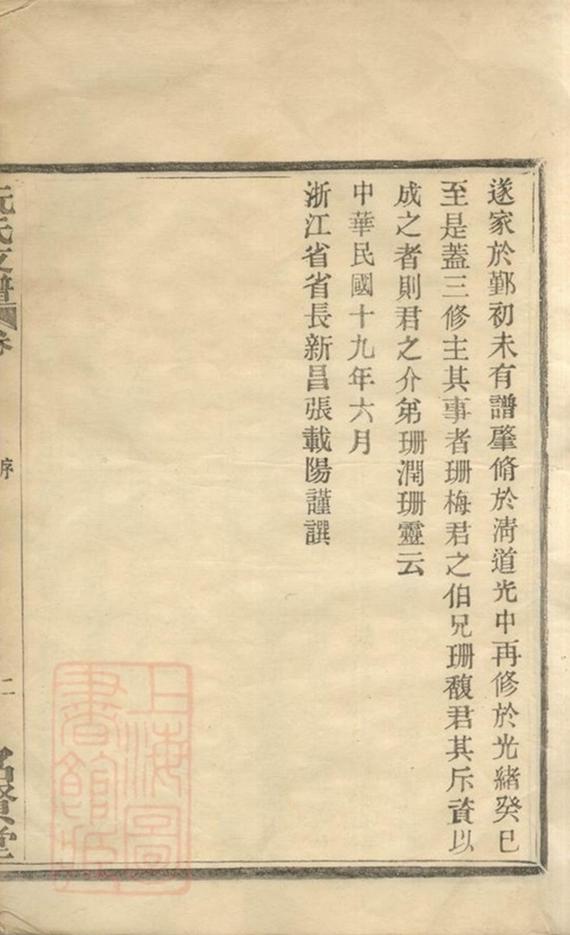 遂家於鄞初未有譜肇脩於淸道光中再修於光緒癸巳
至是葢三修主其事者珊梅君之伯兄珊馥君其斥資以
成之者則君之介弟珊潤珊靈云
中華民國十九年六月
浙江省省長新昌張載陽謹譔
阮氏支譜 卷 序 二 名賢堂
上海圖
書館藏